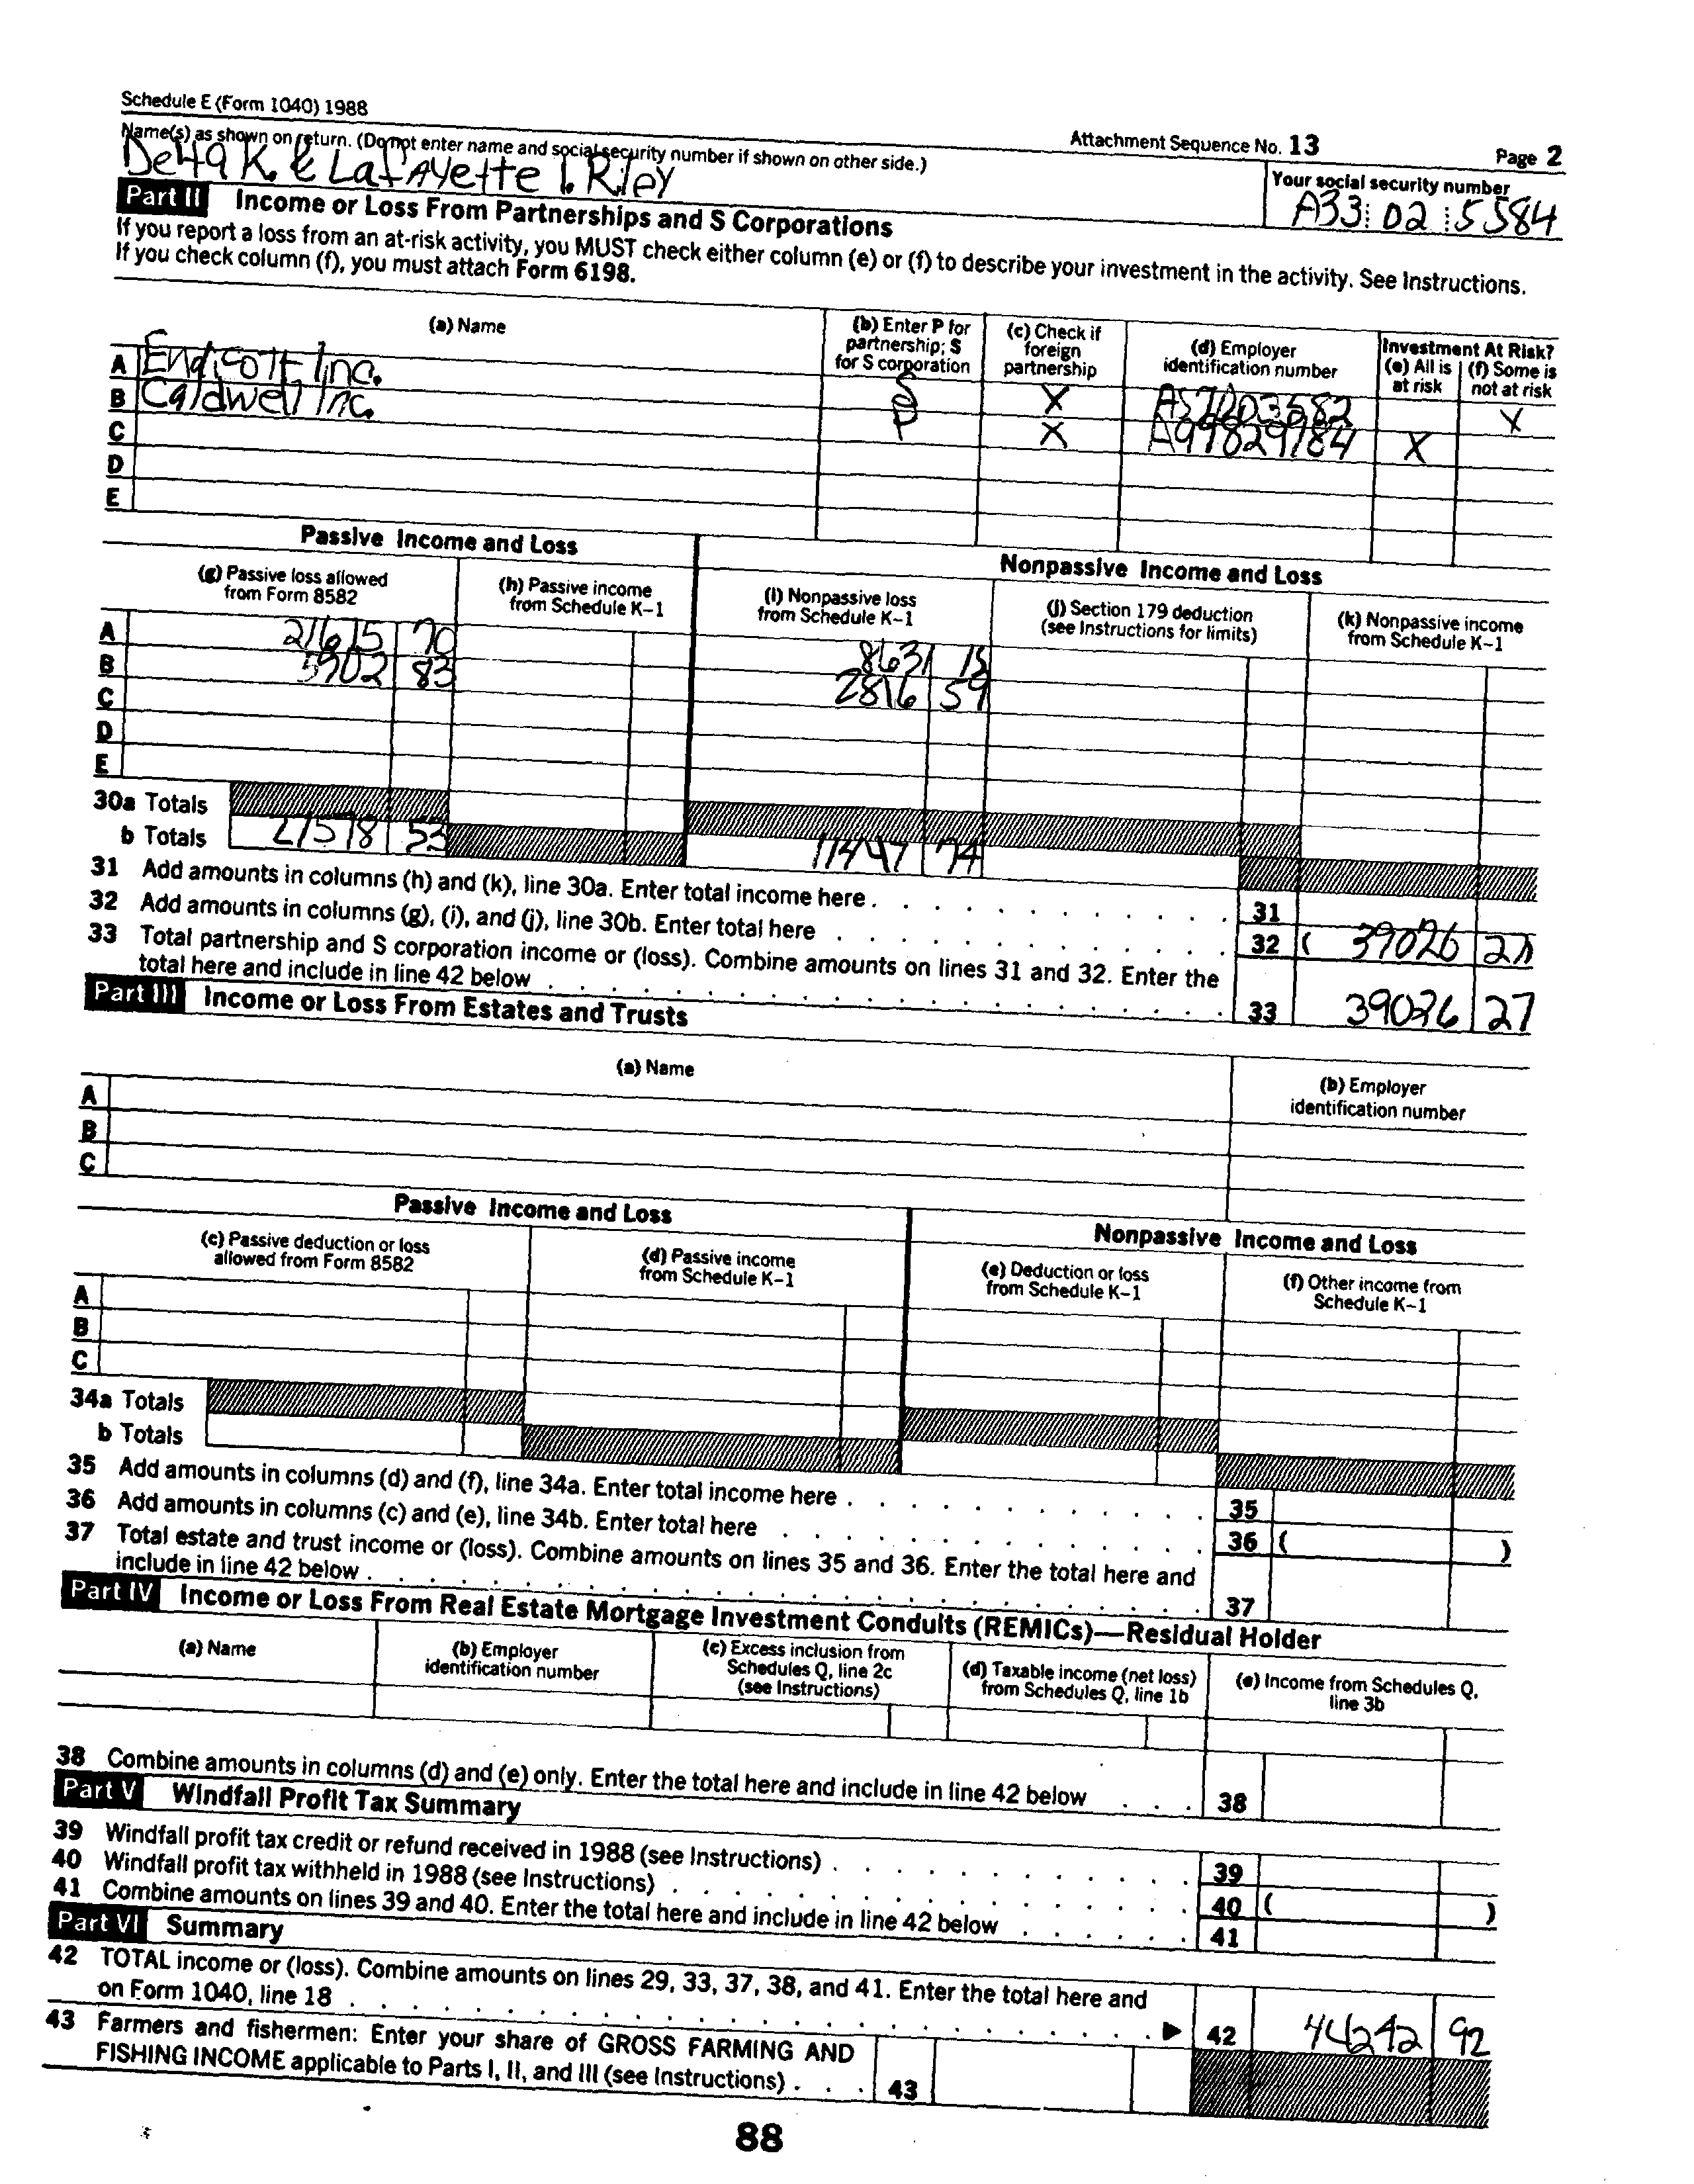 Schedule E (Form 1040) 1988
Attachment Sequence No. 13
Page 2
Name(s) as shown on return. (Do not enter name and social security number if shown on other side.)
Your social security number
K. & LaFAyette I. Riley
A33 02 5584
Part II Income or Loss From Partnerships and S Corporations
If you report a loss from an at-risk activity, you MUST check either column (e) or (f) to describe your investment in the activity. See Instructions.
If you check column (f), you must attach Form 6198.
(a) Name
(b) Enter P for partnership; S for S corporation
(c) Check if foreign partnership
(d) Employer identification number
Investment At Risk?
(e) All is at risk
(f) Some is not at risk
A Endicott Inc. S X X
B Caldwell Inc. P X A99829784 X
C
D
E
Passive Income and Loss
Nonpassive Income and Loss
(g) Passive loss allowed from Form 8582
(h) Passive income from Schedule K–1
(i) Nonpassive loss from Schedule K–1
(j) Section 179 deduction (see Instructions for limits)
(k) Nonpassive income from Schedule K–1
A 21675 70 8631 15
B 5902 83 2816 59
C
D
E
30a Totals
b Totals 27578 53 11447 74
31 Add amounts in columns (h) and (k), line 30a. Enter total income here . 31
32 Add amounts in columns (g), (i), and (j), line 30b. Enter total here . 32 ( 39026 27
33 Total partnership and S corporation income or (loss). Combine amounts on lines 31 and 32. Enter the
total here and include in line 42 below . 33 39026 27
Part III Income or Loss From Estates and Trusts
(a) Name
(b) Employer identification number
A
B
C
Passive Income and Loss
Nonpassive Income and Loss
(c) Passive deduction or loss allowed from Form 8582
(d) Passive income from Schedule K–1
(e) Deduction or loss from Schedule K–1
(f) Other income from Schedule K–1
A
B
C
34a Totals
b Totals
35 Add amounts in columns (d) and (f), line 34a. Enter total income here . 35
36 Add amounts in columns (c) and (e), line 34b. Enter total here . 36 ( )
37 Total estate and trust income or (loss). Combine amounts on lines 35 and 36. Enter the total here and
include in line 42 below . 37
Part IV Income or Loss From Real Estate Mortgage Investment Conduits (REMICs)—Residual Holder
(a) Name
(b) Employer identification number
(c) Excess inclusion from Schedules Q, line 2c (see Instructions)
(d) Taxable income (net loss) from Schedules Q, line 1b
(e) Income from Schedules Q, line 3b
38 Combine amounts in columns (d) and (e) only. Enter the total here and include in line 42 below . . . 38
Part V Windfall Profit Tax Summary
39 Windfall profit tax credit or refund received in 1988 (see Instructions) . 39
40 Windfall profit tax withheld in 1988 (see Instructions) . 40 ( )
41 Combine amounts on lines 39 and 40. Enter the total here and include in line 42 below . 41
Part VI Summary
42 TOTAL income or (loss). Combine amounts on lines 29, 33, 37, 38, and 41. Enter the total here and
on Form 1040, line 18 . ▶ 42 44242 92
43 Farmers and fishermen: Enter your share of GROSS FARMING AND
FISHING INCOME applicable to Parts I, II, and III (see Instructions) . . . 43
88